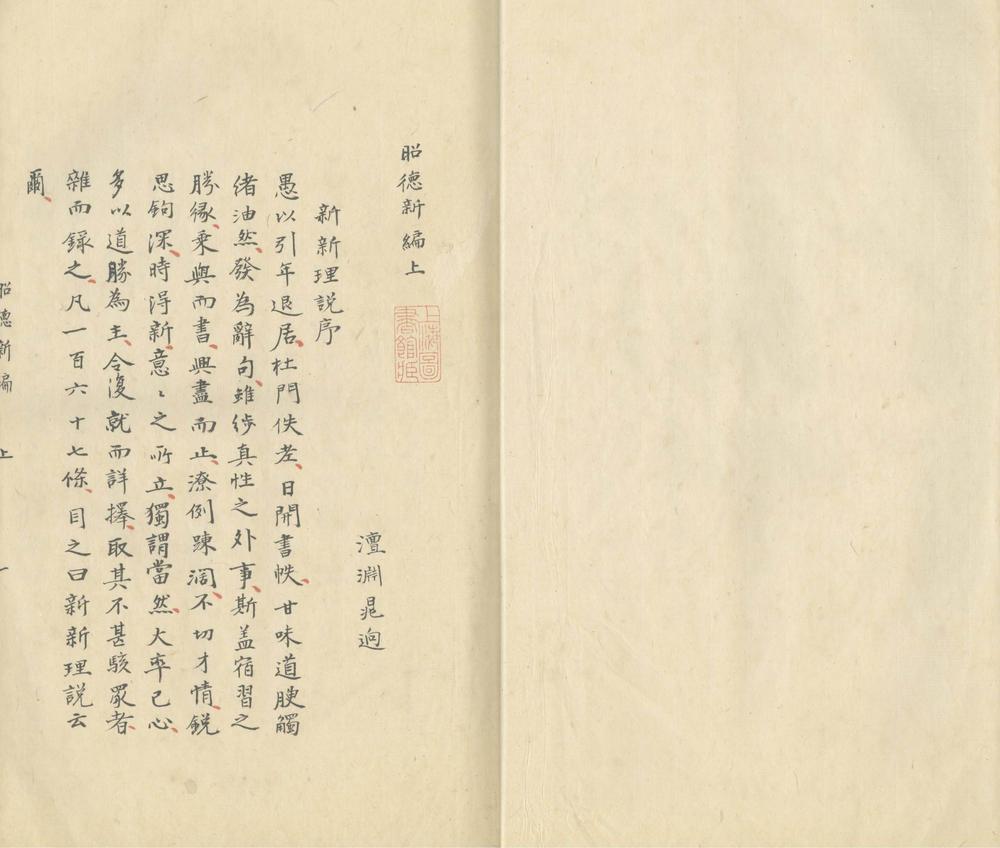 昭德新編上
上海圖
書館藏
澶淵晁迥
新新理説序
愚以引年退居杜門佚老日開書帙甘味道腴觸
緒油然發為辭句雖渉真性之外事斯盖宿習之
勝緣乗興而書興盡而止潦例踈濶不切才情鋭
思鈎深時得新意〻之所立獨謂當然大率已心
多以道勝為主今復就而詳擇取其不甚駭眾者
雜而錄之凡一百六十七條目之曰新新理説云
爾
昭德新編 上 一